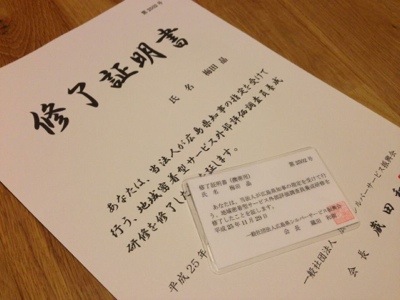 第2002号
修了証明書
氏名 梅田 晶
あなたは、当法人が広島県知事の指定を受けて
行う、地域密着型サービス外部評価調査員養成
研修を修了したことを証します。
平成25年
一般社団法人
会長
第2002号
修了証明書(携帯用)
氏名 梅田 晶
あなたは、当法人が広島県知事の指定を受けて行
う、地域密着型サービス外部評価調査員養成研修を
修了したことを証します。
平成25年11月29日
一般社団法人広島県シルバーサービス振興会
会長